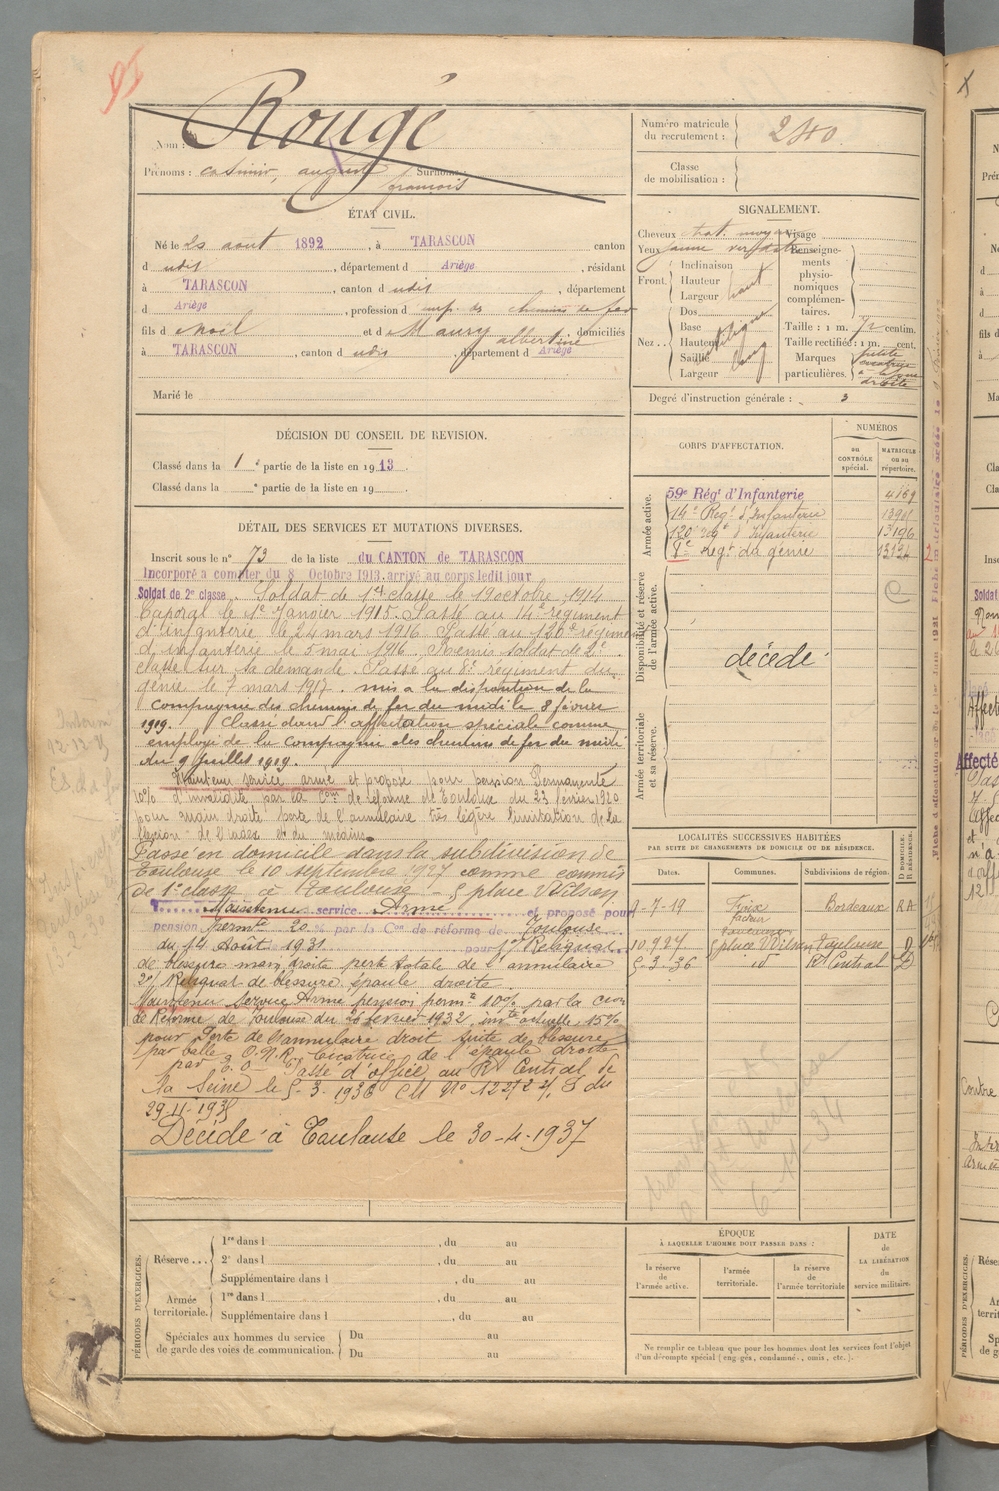 Nom : Rougé
Prénoms : Casimir, auguste Surnoms :
françois
Numéro matricule
du recrutement : 240
Classe
de mobilisation :
ÉTAT CIVIL.
Né le 20 aout 1892, à TARASCON canton
d udit, département d Ariège, résidant
à TARASCON, canton d udit, département
d Ariège, profession d emp. des chemins de fer
fils d Noël et d Maury albertine, domiciliés
à TARASCON, canton d udit, département d Ariège
Marié le
SIGNALEMENT.
Cheveux chat. moyen Visage
Yeux jaune verdâtre
Renseignements physionomiques complémentaires.
Front. Inclinaison
Hauteur
Largeur haut
Nez.. Dos
Base
Hauteur
Saillie
Largeur long
Taille : 1 m. 72 centim.
Taille rectifiée : 1 m. cent.
Marques
particulières. petite cicatrice droite
Degré d'instruction générale : 3
DÉCISION DU CONSEIL DE REVISION.
Classé dans la 1e partie de la liste en 1913.
Classé dans la e partie de la liste en 19
DÉTAIL DES SERVICES ET MUTATIONS DIVERSES.
Inscrit sous le n° 73 de la liste du CANTON de TARASCON
Incorporé à compter du 8 Octobre 1913. arrivé au corps ledit jour
Soldat de 2e classe. Soldat de 1e classe le 19 octobre 1914
Caporal le 1e Janvier 1915. Passé au 14e régiment
d'infanterie le 24 mars 1916. Passé au 120e régiment
d'infanterie le 5 mai 1916. Remis soldat de 2e
classe sur sa demande. Passé au 8e régiment du
génie le 7 mars 1917. mis à la disposition de la
compagnie des chemins de fer du midi le 8 février
1919. Classé dans l'affectation spéciale comme
employé de la compagnie des chemins de fer du midi
du 9 Juillet 1919.
Maintenu service armé et proposé pour pension Permanente
10% d'invalidité par la Con de réforme de Toulouse du 23 février 1920
pour main droite perte de l'annulaire très légère limitation de la
flexion de l'index et du médius.
Passé en domicile dans la subdivision de
Toulouse le 10 septembre 1927 comme commis
de 1e classe à Toulouse - 5 place Wilson
Maintenu service Armé et proposé pour
pension permte 20 % par la Con de réforme de Toulouse
du 14 Août 1931 pour 1° Reliquat
de blessure main droite perte totale de l'annulaire
2° Reliquat de blessure épaule droite
Maintenu Service Armé pension permte 10% par la Con
de Réforme de Toulouse du 26 février 1932, invté actuelle, 15%
pour Perte de l'annulaire droit suite de blessure
par balle. Cicatrice de l'épaule droite
par E.O. Passé d'office au Rt Central de
la Seine le 5-3-1936 CM N° 12272 2/ S du
29-11-1935
Décédé à Toulouse le 30-4-1937
CORPS D'AFFECTATION.
NUMÉROS
au CONTRÔLE spécial.
MATRICULE ou au répertoire.
Armée active.
59e Régt d'Infanterie 4169
14e Regt d'Infanterie
120e regt d'Infanterie 13196
8e Regt du génie 13124
Disponibilité et réserve
de l'armée active.
décédé
Armée territoriale
et sa réserve.
LOCALITÉS SUCCESSIVES HABITÉES
PAR SUITE DE CHANGEMENTS DE DOMICILE OU DE RÉSIDENCE.
Dates. Communes. Subdivisions de région. D DOMICILE. R RÉSIDENCE.
9-7-19 Foix Bordeaux RA
10 9 27 5 place Wilson Toulouse D
5-3-36 id Rt Central D
PÉRIODES D'EXERCICES.
Réserve... 1re dans l , du au
2e dans l , du au
Supplémentaire dans l , du au
Armée
territoriale. 1re dans l , du au
Supplémentaire dans l , du au
Spéciales aux hommes du service
de garde des voies de communication. Du au
Du au
ÉPOQUE
À LAQUELLE L'HOMME DOIT PASSER DANS :
la réserve
de
l'armée active.
l'armée
territoriale.
la réserve
de
l'armée territoriale
DATE
de
LA LIBÉRATION
du
service militaire.
Ne remplir ce tableau que pour les hommes dont les services font l'objet
d'un décompte spécial (engagés, condamné., omis, etc.).